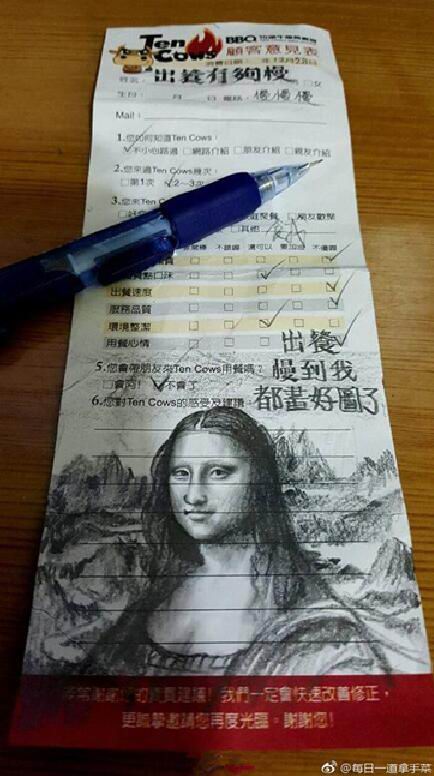 Ten Cows BBQ
顧客意見表
月28日
出餐有夠慢 □女
生日: 月 日 電話: 慢慢慢
Mail:
1.您如何知道Ten Cows:
✓不小心路過 □網路介紹 □朋友介紹 □親友介紹
2.您來過Ten Cows幾次:
□第1次 ✓2~3次
3.您來Ten
聚餐 □朋友歡聚
□其他
不錯 還可以 要加油 不優
口味
出餐速度
服務品質
環境整潔
用餐心情
出餐
慢到我
都畫好圖了
5.您會帶朋友來Ten Cows用餐嗎?
□會的! ✓不會了
6.您對Ten Cows的感受及建議:
非常謝謝您的寶貴建議! 我們一定會快速改善修正,
更誠摯邀請您再度光臨。謝謝您!
@每日一道拿手菜